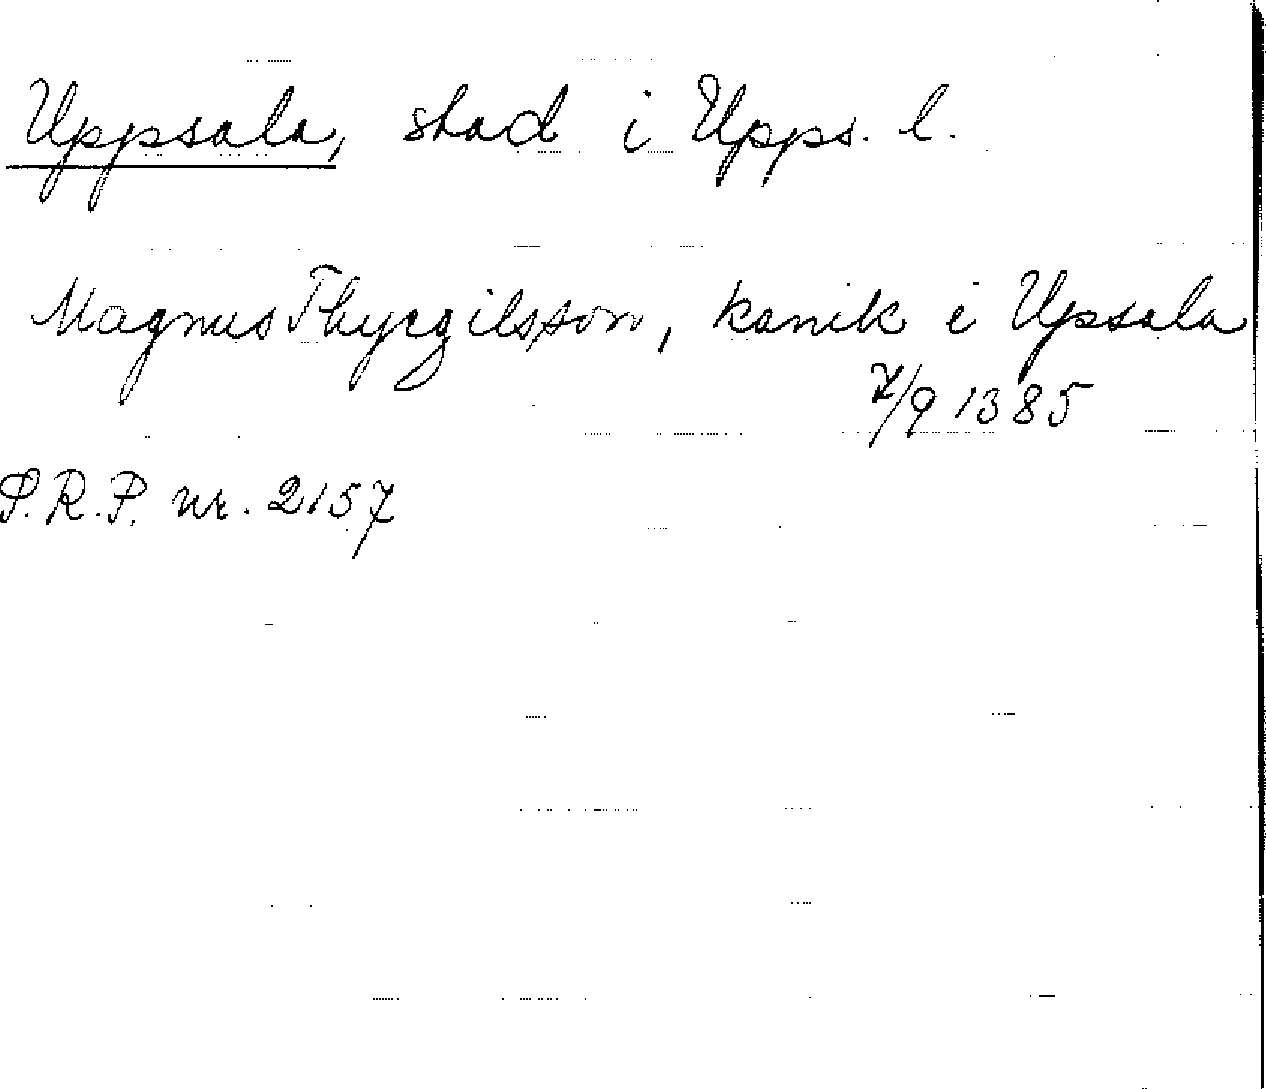 Uppsala, stad i Upps. l.
Magnus Thyrgilsson, kanik i Upsala
7/9 1385
P.R.P. nr. 2157